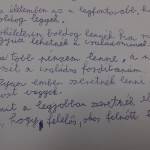 életemben az a legfontosabb, h
boldog legyek.
boldog legyek ha
lehetnék a családommal.
több pénzem lenne, a
a családra fordítanám.
ember szeretnék lenne
vagyok.
a legjobban szeretnék el
, hogy felelős, okos felnőtt